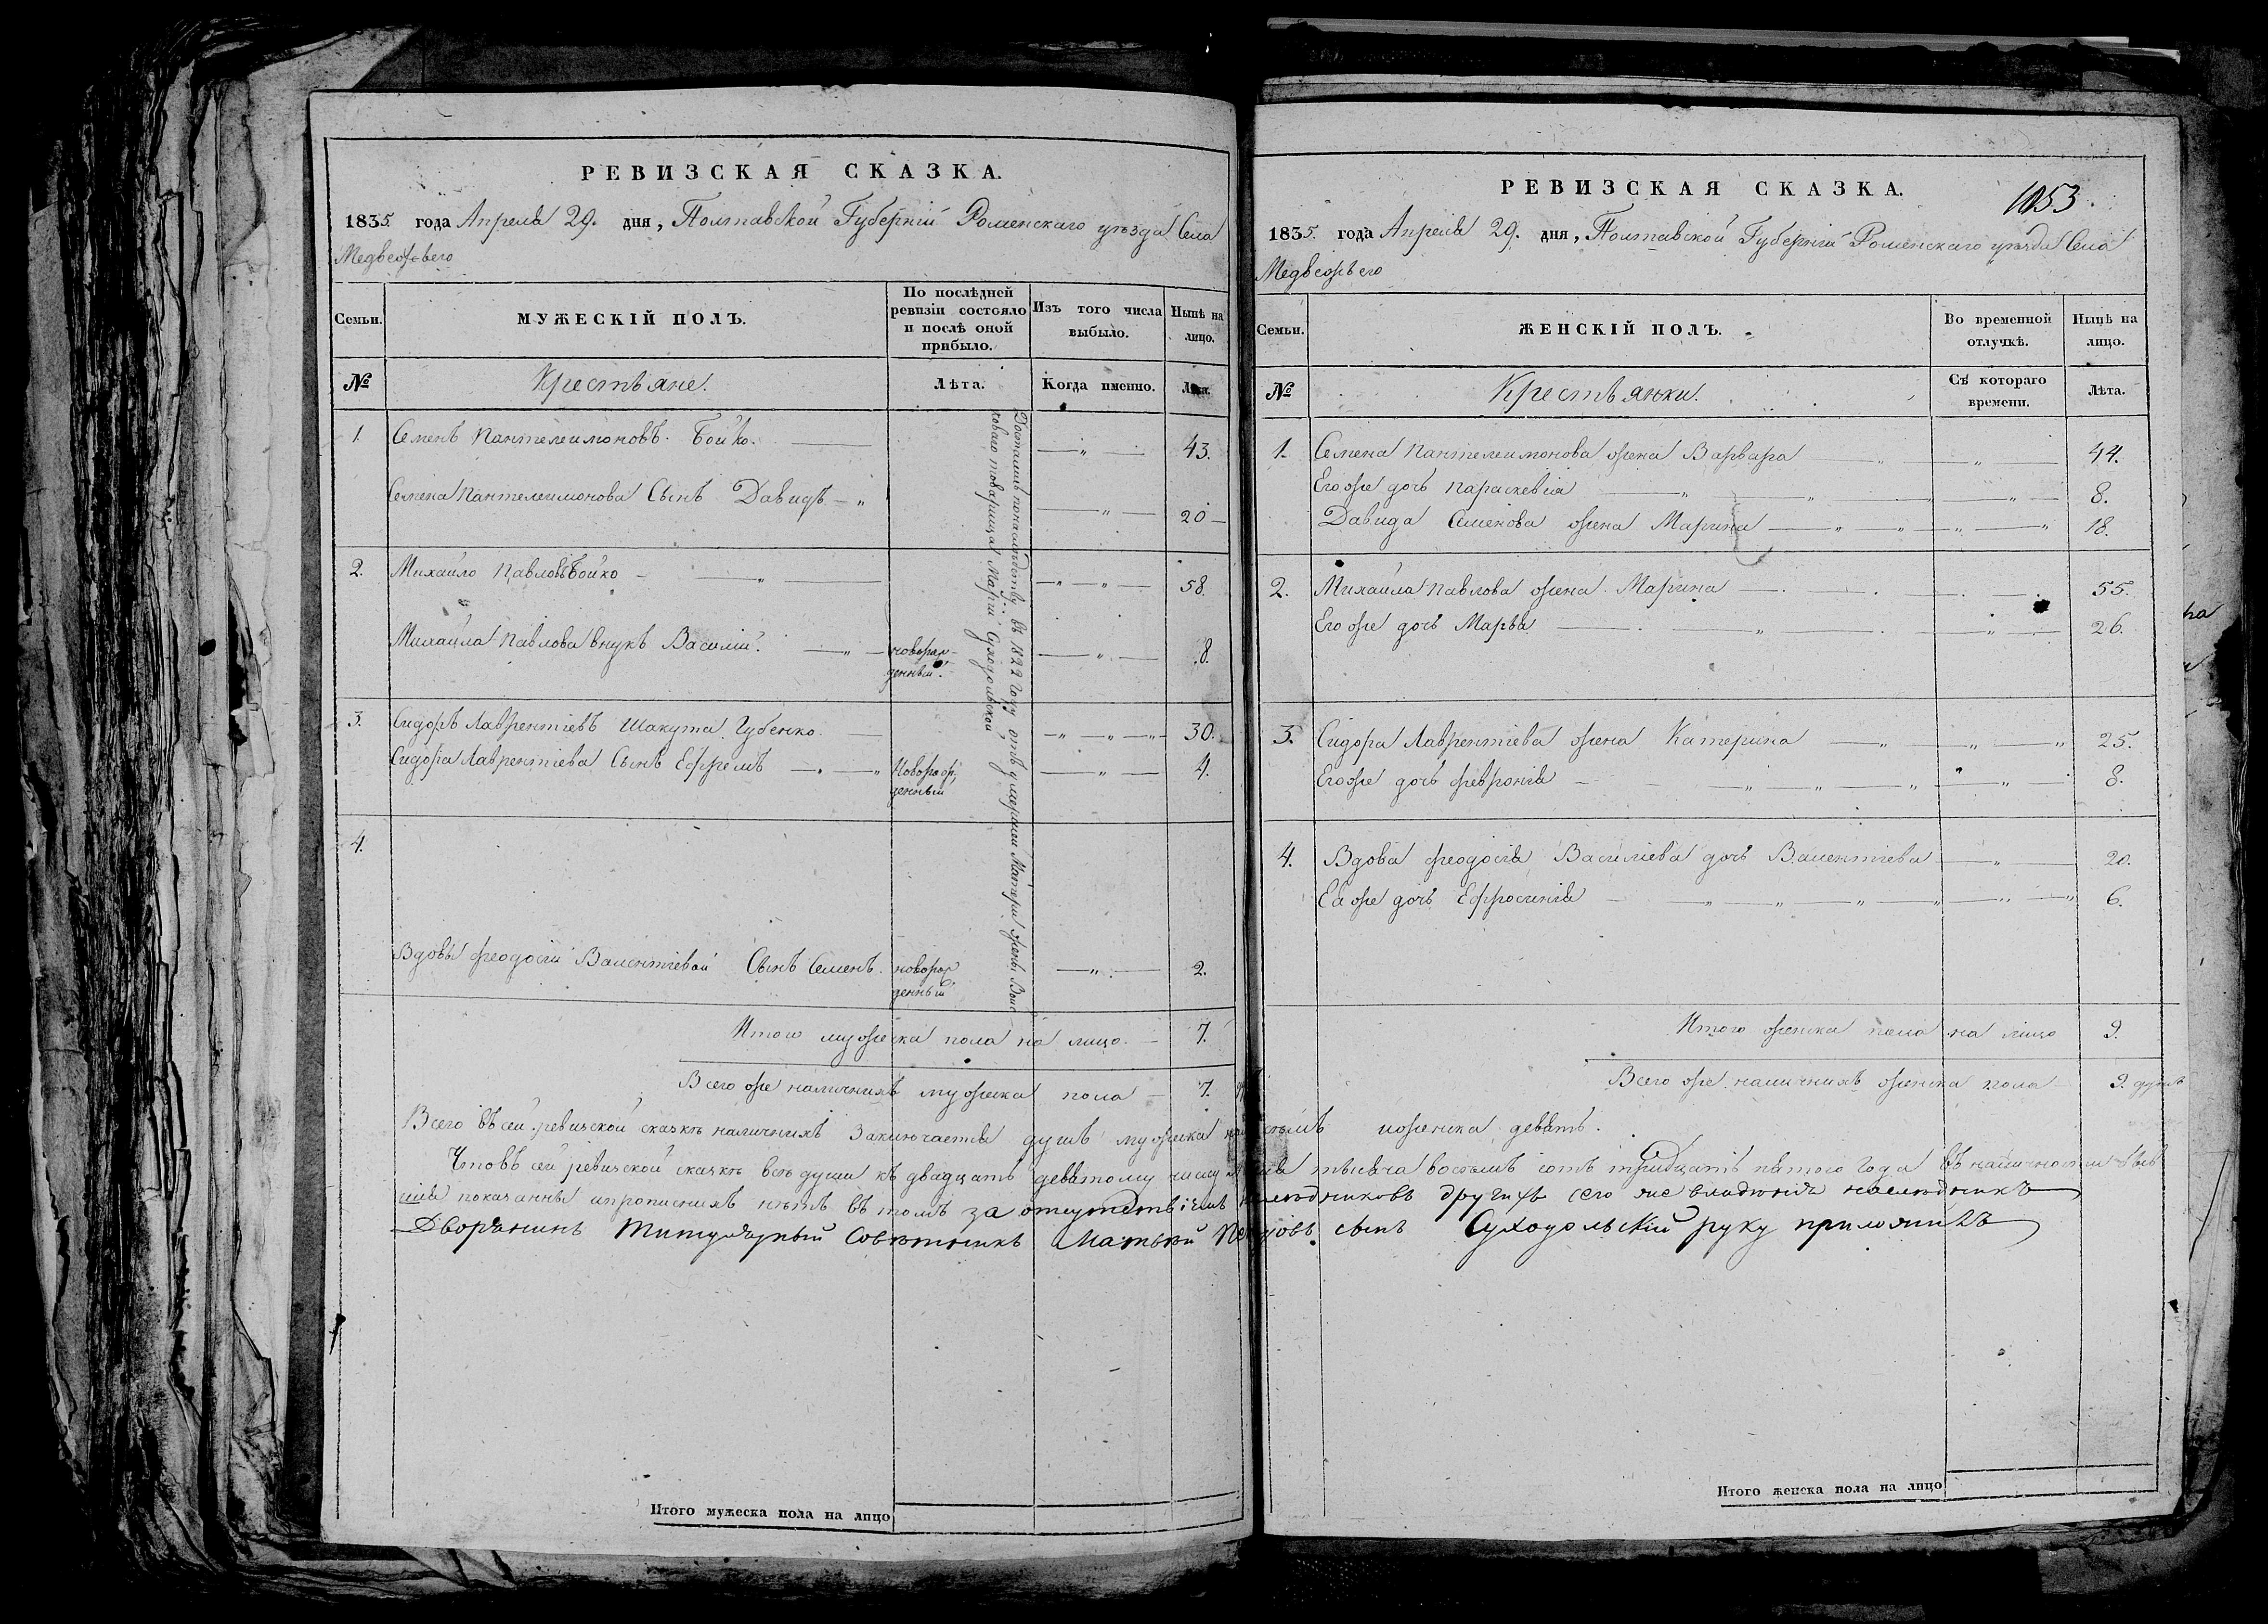 РЕВИЗСКАЯ СКАЗКА.
1835. года Апреля 29. дня, Полтавской Губерніи Роменскаго уезда Села
Медвежьего
Семьи.
МУЖЕСКІЙ ПОЛЪ.
По послѣдней
ревизіи состояло
и послѣ оной
прибыло.
Изъ того числа
выбыло.
Нынѣ на
лицо.
№
Крестьяне.
Лѣта.
Когда именно.
Лѣта.
1. Семенъ Пантелеимоновъ Бойко. 43.
Семена Пантелеимонова Сынъ Давидъ 20
2. Михайло Павловъ Бойко 58.
Михайла Павлова внукъ Василій. новорож-
денный. 8.
3. Сидоръ Лаврентіевъ Шакута Губенко 30.
Сидора Лаврентіева Сынъ Ефремъ Новорож,
денный 4.
4.
Вдовы Феодосіи Валентіевой Сынъ Семенъ. новорож
денный 2.
Достались по наследству въ 1822 году отъ умершей Матери жены Войс
коваго товарища Маріи Суходольской
Итого мужеска пола на лицо 7.
Всего же наличныхъ мужеска пола 7.
РЕВИЗСКАЯ СКАЗКА.
1053.
1835. года Апреля 29. дня, Полтавской Губерніи Роменскаго уезда Села
Медвежьего
Семьи.
ЖЕНСКІЙ ПОЛЪ.
Во временной
отлучкѣ.
Нынѣ на
лицо.
№
Крестьянки.
Съ котораго
времени.
Лѣта.
1. Семена Пантелеимонова жена Варвара 44.
Егоже дочь Параскевія 8.
Давида Семенова жена Марина 18.
2. Михайла Павлова жена Марина 55.
Егоже дочь Марья 26.
3. Сидора Лаврентіева жена Катерина 25.
Егоже дочь Февронія 8.
4. Вдова Феодосія Василіева дочь Валентіева 20.
Еяже дочь Ефросинія 6.
Итого женска пола на лицо 9.
Всего же наличныхъ женска пола 9. душъ
Всего въ сей ревизской сказкѣ наличныхъ заключается душъ мужеска семь иженска девять.
Что въ сей ревизской сказкѣ всѣ души къ двадцать девятому числу тысяча восемь сотъ тридцать пятого года въ наличности
показанны ипрописныхъ нѣтъ въ томъ за отсутствіемъ наследниковъ другихъ сего же владѣнія наследникъ
Дворянинъ Титулярный Советникъ Матвей Петровъ сынъ Суходольскій руку приложилъ
Итого мужеска пола на лицо
Итого женска пола на лицо